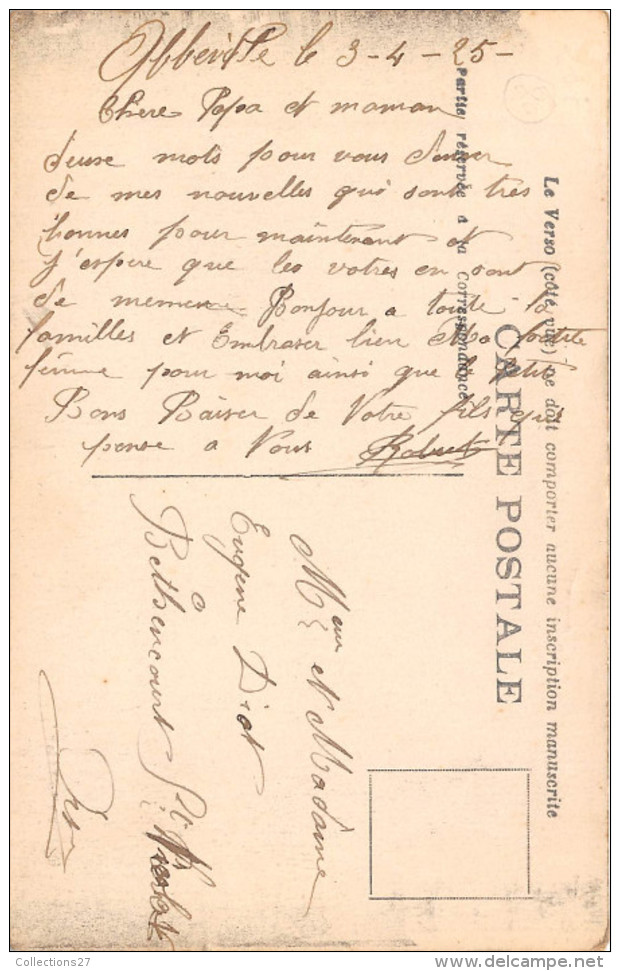 Abbeville le 3-4-25-
Chere Papa et maman
deux mots pour vous donner
de mes nouvelles qui sont très
bonnes pour maintenant et
j'espere que les votres en sont
de meme Bonjour a toute la
familles et Embrasser bien Ma petite
femme pour moi ainsi que le petit
Bons Baiser de Votre fils qui
pense a Vous Robert
Mr et Madame
Eugene Diot
à Bethencourt St
Partie réservée à la correspondance
CARTE POSTALE
Le Verso (côté vue) ne doit comporter aucune inscription manuscrite
Collections27